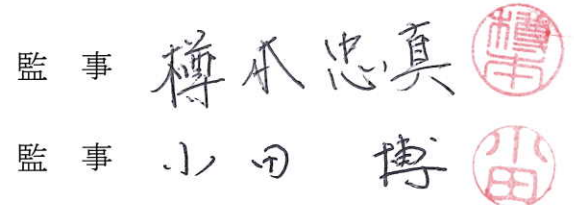 監 事 樽本忠真 樽本
監 事 小田 博 小田